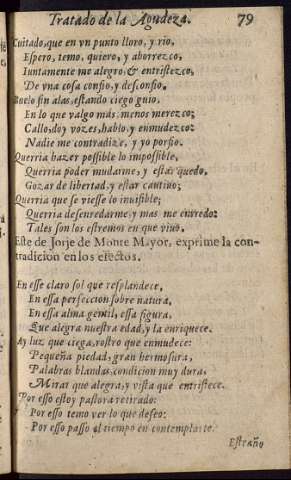 Tratado de la Agudeza. 79
Cuitado, que en vn punto lloro, y rio,
Espero, temo, quiero, y aborrezco,
Iuntamente me alegro, & entristezco,
De vna cosa confio, y desconfio.
Buelo sin alas, estando ciego guio,
En lo que valgo más menos merezco;
Callo, doy vozes, hablo, y enmudezco:
Nadie me contradize, y yo porfio.
Querria hazer possible lo impossible,
Querria poder mudarme, y estar quedo,
Gozar de libertad, y estar cautiuo;
Querria que se viesse lo inuisible;
Querria desenredarme, y mas me enredo:
Tales son los estremos en que viuo.
Este de Jorje de Monte Mayor, exprime la con-
tradicion en los efectos.
En esse claro sol que resplandece,
En essa perfeccion sobre natura,
En essa alma gentil, essa figura,
Que alegra nuestra edad, y la enriquece.
Ay luz que ciega, rostro que enmudece:
Pequeña piedad, gran hermosura,
Palabras blandas, condicion muy dura,
Mirar que alegra, y vista que entristece.
Por esso estoy pastora retirado:
Por esso temo ver lo que deseo:
Por esso passo el tiempo en contemplarte.
Estraño